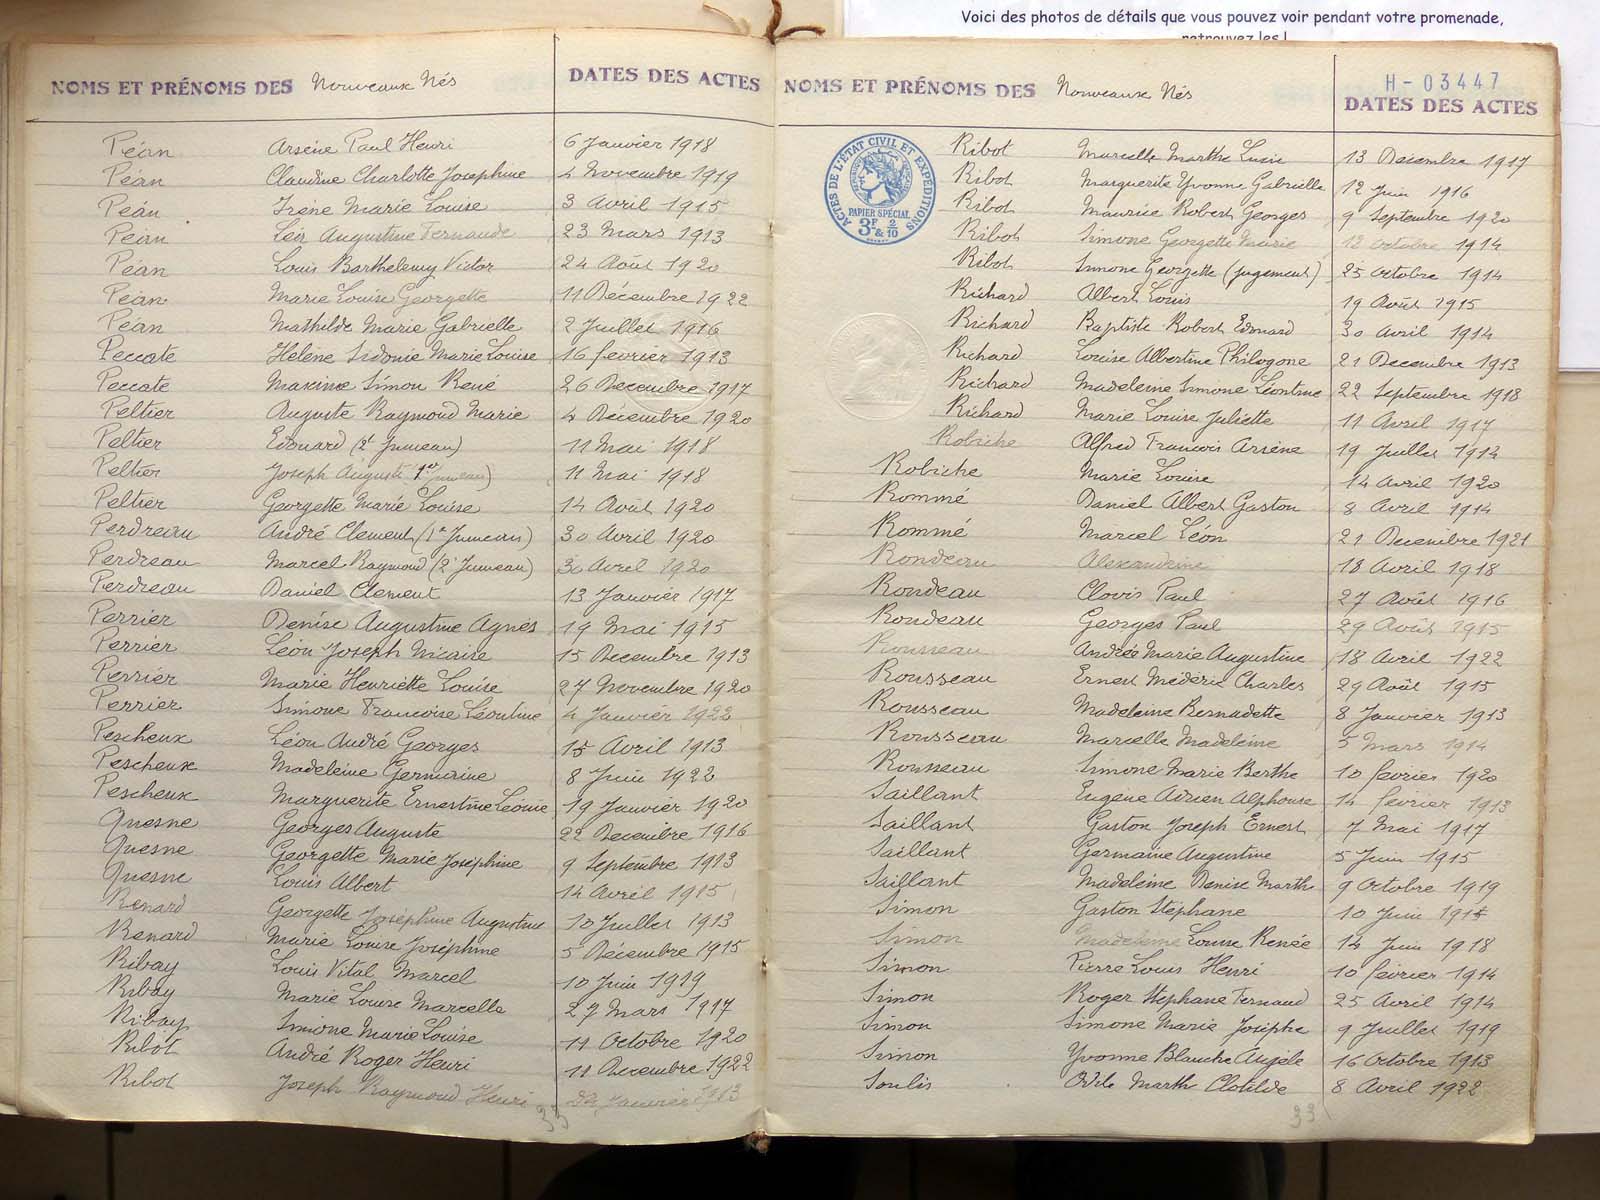 Voici des photos de détails que vous pouvez voir pendant votre promenade,
retrouvez les !
NOMS ET PRÉNOMS DES Nouveaux Nés DATES DES ACTES
Péan Arsène Paul Henri 6 Janvier 1918
Péan Claudine Charlotte Josephine 4 Novembre 1919
Péan Irène Marie Louise 3 Avril 1915
Péan Augustine Fernande 23 Mars 1913
Péan Louis Barthelemy Victor 24 Août 1920
Péan Marie Louise Georgette 11 Décembre 1922
Péan Mathilde Marie Gabrielle 2 Juillet 1916
Peccate Hélène Sidonie Marie Louise 16 fevrier 1913
Peccate Maxime Simon René 26 Decembre 1917
Peltier Auguste Raymond Marie 4 Décembre 1920
Peltier Edouard (2e Jumeau) 11 Mai 1918
Peltier Joseph Auguste 1er Jumeau) 11 Mai 1918
Peltier Georgette Marie Louise 14 Août 1920
Perdreau André Clement (1e Jumeau) 30 Avril 1920
Perdreau Marcel Raymond (2e Jumeau) 30 Avril 1920
Perdreau Daniel Clement 13 Janvier 1917
Perrier Denise Augustine Agnès 19 Mai 1915
Perrier Léon Joseph Nicaise 15 Decembre 1913
Perrier Marie Henriette Louise 27 Novembre 1920
Perrier Simone Francoise Léontine 4 Janvier 1922
Pescheux Léon André Georges 15 Avril 1913
Pescheux Madeleine Germaine 8 Juin 1922
Pescheux Marguerite Ernestine Léonie 19 Janvier 1920
Quesne Georges Auguste 22 Decembre 1916
Quesne Georgette Marie Joséphine 9 Septembre 1913
Quesne Louis Albert 14 Avril 1915
Renard Georgette Joséphine Augustine 10 Juillet 1913
Renard Marie Louise Joséphine 5 Décembre 1915
Ribay Louis Vital Marcel 10 Juin 1919
Ribay Marie Louise Marcelle 27 Mars 1917
Ribay Simone Marie Louise 11 Octobre 1920
Ribot André Roger Henri 11 Decembre 1922
Ribot Joseph Raymond Henri 24 Janvier 1913
33
H-03447
NOMS ET PRÉNOMS DES Nouveaux Nés DATES DES ACTES
ACTES DE L'ÉTAT CIVIL ET EXPÉDITIONS
PAPIER SPÉCIAL
3F & 2/10
Ribot Marcelle Marthe Lucie 13 Decembre 1917
Ribot Marguerite Yvonne Gabrielle 12 Juin 1916
Ribot Maurice Robert Georges 9 Septembre 1920
Ribot Simone Georgette Marie 12 octobre 1914
Ribot Simone Georgette (jugement) 25 octobre 1914
Richard Albert Louis 19 Août 1915
Richard Baptiste Robert Edouard 30 Avril 1914
Richard Louise Albertine Philogone 21 Decembre 1913
Richard Madeleine Simone Léontine 22 Septembre 1918
Richard Marie Louise Juliette 11 Avril 1917
Robiche Alfred Francois Arsène 19 Juillet 1914
Robiche Marie Louise 14 Avril 1920
Rommé Daniel Albert Gaston 8 Avril 1914
Rommé Marcel Léon 21 Decembre 1921
Rondeau Alexandrine 18 Avril 1918
Rondeau Clovis Paul 27 Août 1916
Rondeau Georges Paul 29 Août 1915
Rousseau Andrée Marie Augustine 18 Avril 1922
Rousseau Ernest Médéric Charles 29 Août 1915
Rousseau Madeleine Bernadette 8 Janvier 1913
Rousseau Marcelle Madeleine 5 Mars 1914
Rousseau Simone Marie Berthe 10 fevrier 1920
Saillant Eugène Adrien Alphonse 14 fevrier 1913
Saillant Gaston Joseph Ernest 7 Mai 1917
Saillant Germaine Augustine 5 Juin 1915
Saillant Madeleine Denise Marth 9 Octobre 1919
Simon Gaston Stéphane 10 Juin 1915
Simon Madeleine Louise Renée 14 Juin 1918
Simon Pierre Louis Henri 10 février 1914
Simon Roger Stephane Fernand 25 Avril 1914
Simon Simone Marie Josèphe 9 Juillet 1919
Simon Yvonne Blanche Angèle 16 Octobre 1913
Soulis Odile Marth Clotilde 8 Avril 1922
33